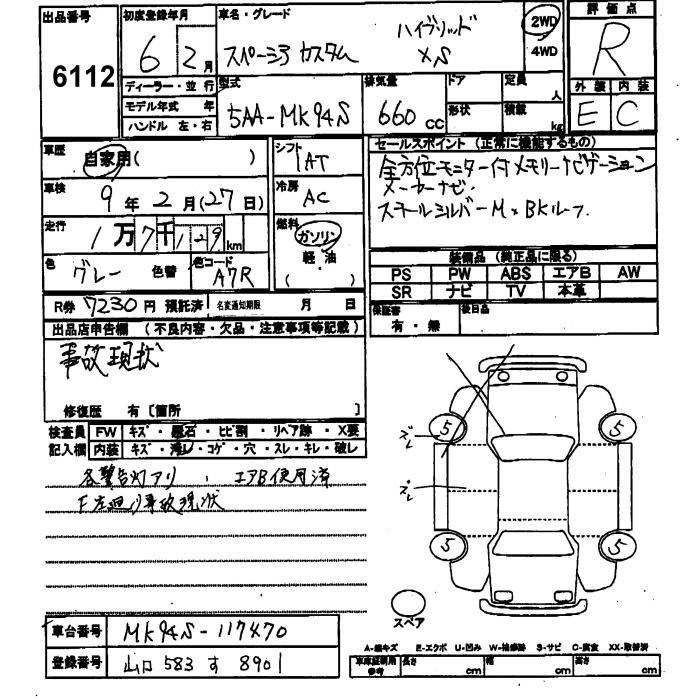 出品番号 6112
初度登録年月 6 2月
車名・グレード スペーシア カスタム ハイブリッド XS
2WD
4WD
評価点 R
外装 E 内装 C
ディーラー・並行
モデル年式 年
ハンドル 左・右
型式 5AA-MK94S
排気量 660 CC
ドア
形状
定員 人
積載 kg
車歴 自家用( )
シフト IAT
車検 9年2月(27日)
冷房 AC
走行 1万7千129km
燃料 ガソリン 軽・油 ( )
色 グレー 色替
色コード A7R
セールスポイント (正常に機能するもの)
全方位モニター付メモリーナビゲーション
メーカーナビ
スチールシルバーM×BKルーフ
装備品 (純正品に限る)
PS PW ABS エアB AW
SR ナビ TV 本革
保証書 有・無
後日品
R券 7230円 預託済 名変通知期限 月 日
出品店申告欄 (不良内容・欠品・注意事項等記載)
事故現状
修復歴 有〔箇所 〕
検査員記入欄
FW キズ・飛石・ヒビ割・リペア跡・X要
内装 キズ・汚レ・コゲ・穴・スレ・キレ・破レ
各警告灯アリ、エアB使用済
F左廻り事故現状
5 5 5 5
ズレ
ズレ
スペア
車台番号 MK94S-117470
登録番号 山口 583 す 8901
A-線キズ E-エクボ U-凹み W-補修跡 S-サビ C-腐食 XX-取替済
車庫証明用参考 長さ cm 幅 cm 高さ cm